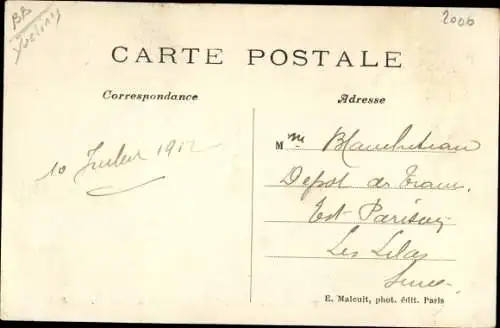 BB
2000
CARTE POSTALE
Correspondance
Adresse
10 Juillet 1912
Mme Blancheteau
Depot de Tram.
Est-Parisien
Les Lilas
Seine
E. Malcuit, phot. édit. Paris